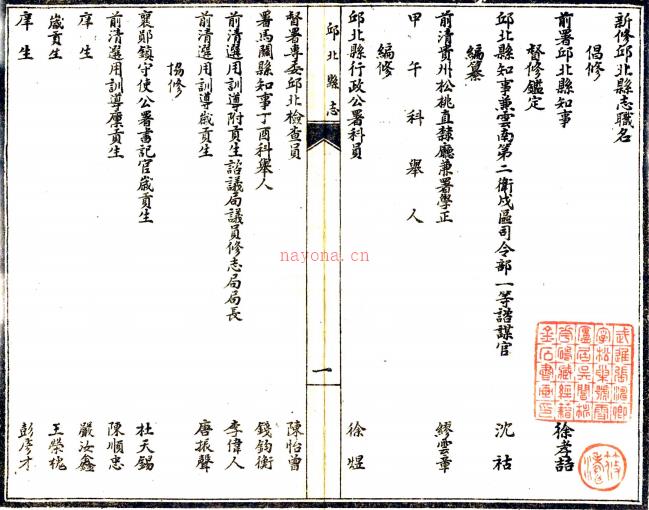 新修邱北縣志職名
倡修
前署邱北縣知事 徐孝喆
督修鑑定
邱北縣知事兼雲南第二衛戍區司令部一等諮謀官 沈祜
編纂
前清貴州松桃直隸廳兼署學正
甲午科舉人 繆雲章
編修
邱北縣行政公署科員 徐煜
邱北縣志
一
督署專委邱北檢查員 陳怡曾
署馬關縣知事丁酉科舉人 錢鈞衡
前清選用訓導附貢生諮議局議員修志局局長 李偉人
前清選用訓導歲貢生 唐振聲
協修
襄鄖鎮守使公署書記官歲貢生 杜天錫
前清選用訓導廩貢生 陳順忠
庠生 嚴汝鑫
歲貢生 王榮槐
庠生 彭彥才
nayona.cn